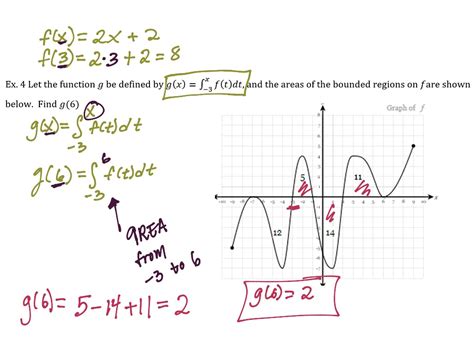 f(x) = 2x + 2
f(3) = 2·3 + 2 = 8
Ex. 4 Let the function g be defined by g(x) = ∫₋₃ˣ f(t)dt, and the areas of the bounded regions on f are shown
below. Find g(6)
Graph of f
g(x) = ∫₋₃ˣ f(t)dt
g(6) = ∫₋₃⁶ f(t)dt
AREA
from
-3 to 6
5
11
12
14
x
g(6) = 5-14+11 = 2
g(6) = 2